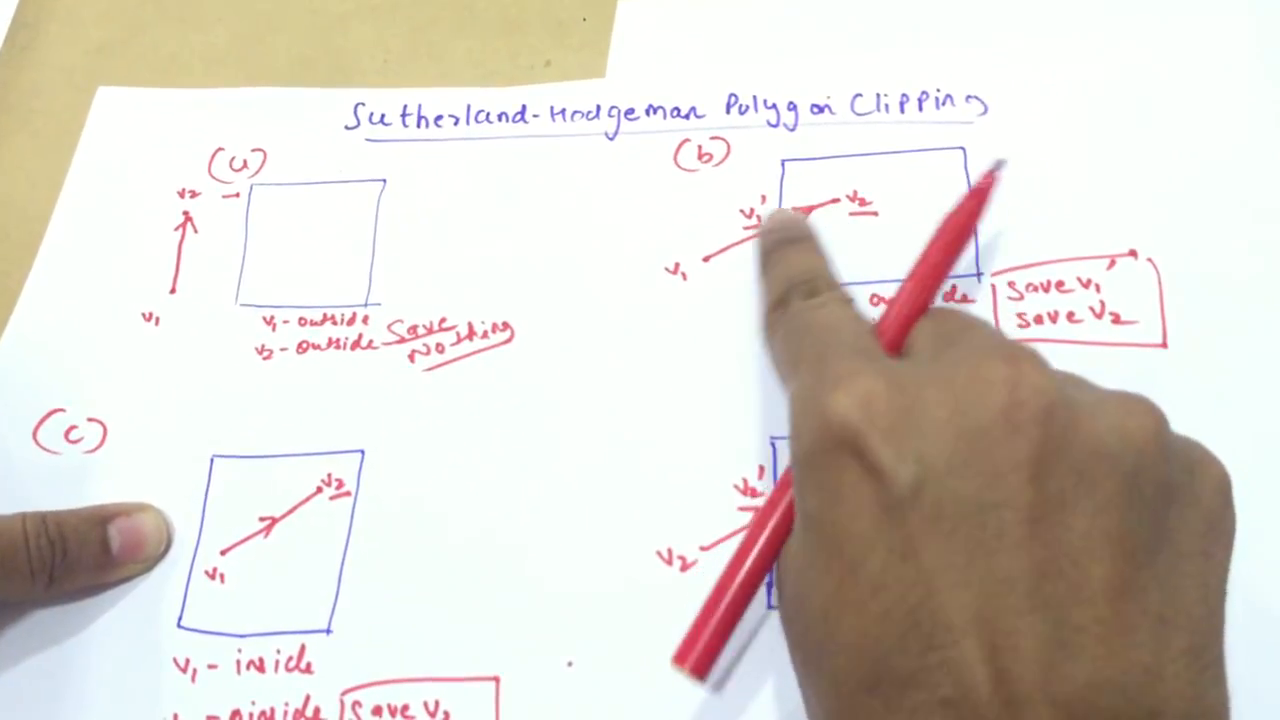 Sutherland-Hodgeman Polygon Clipping
(a)
v2
v1
v1-outside
v2-outside Save Nothing
(b)
v1'
v2
v1
save v1'
save v2
(c)
v2
v1
v1 - inside
inside Save v2
v2'
v2